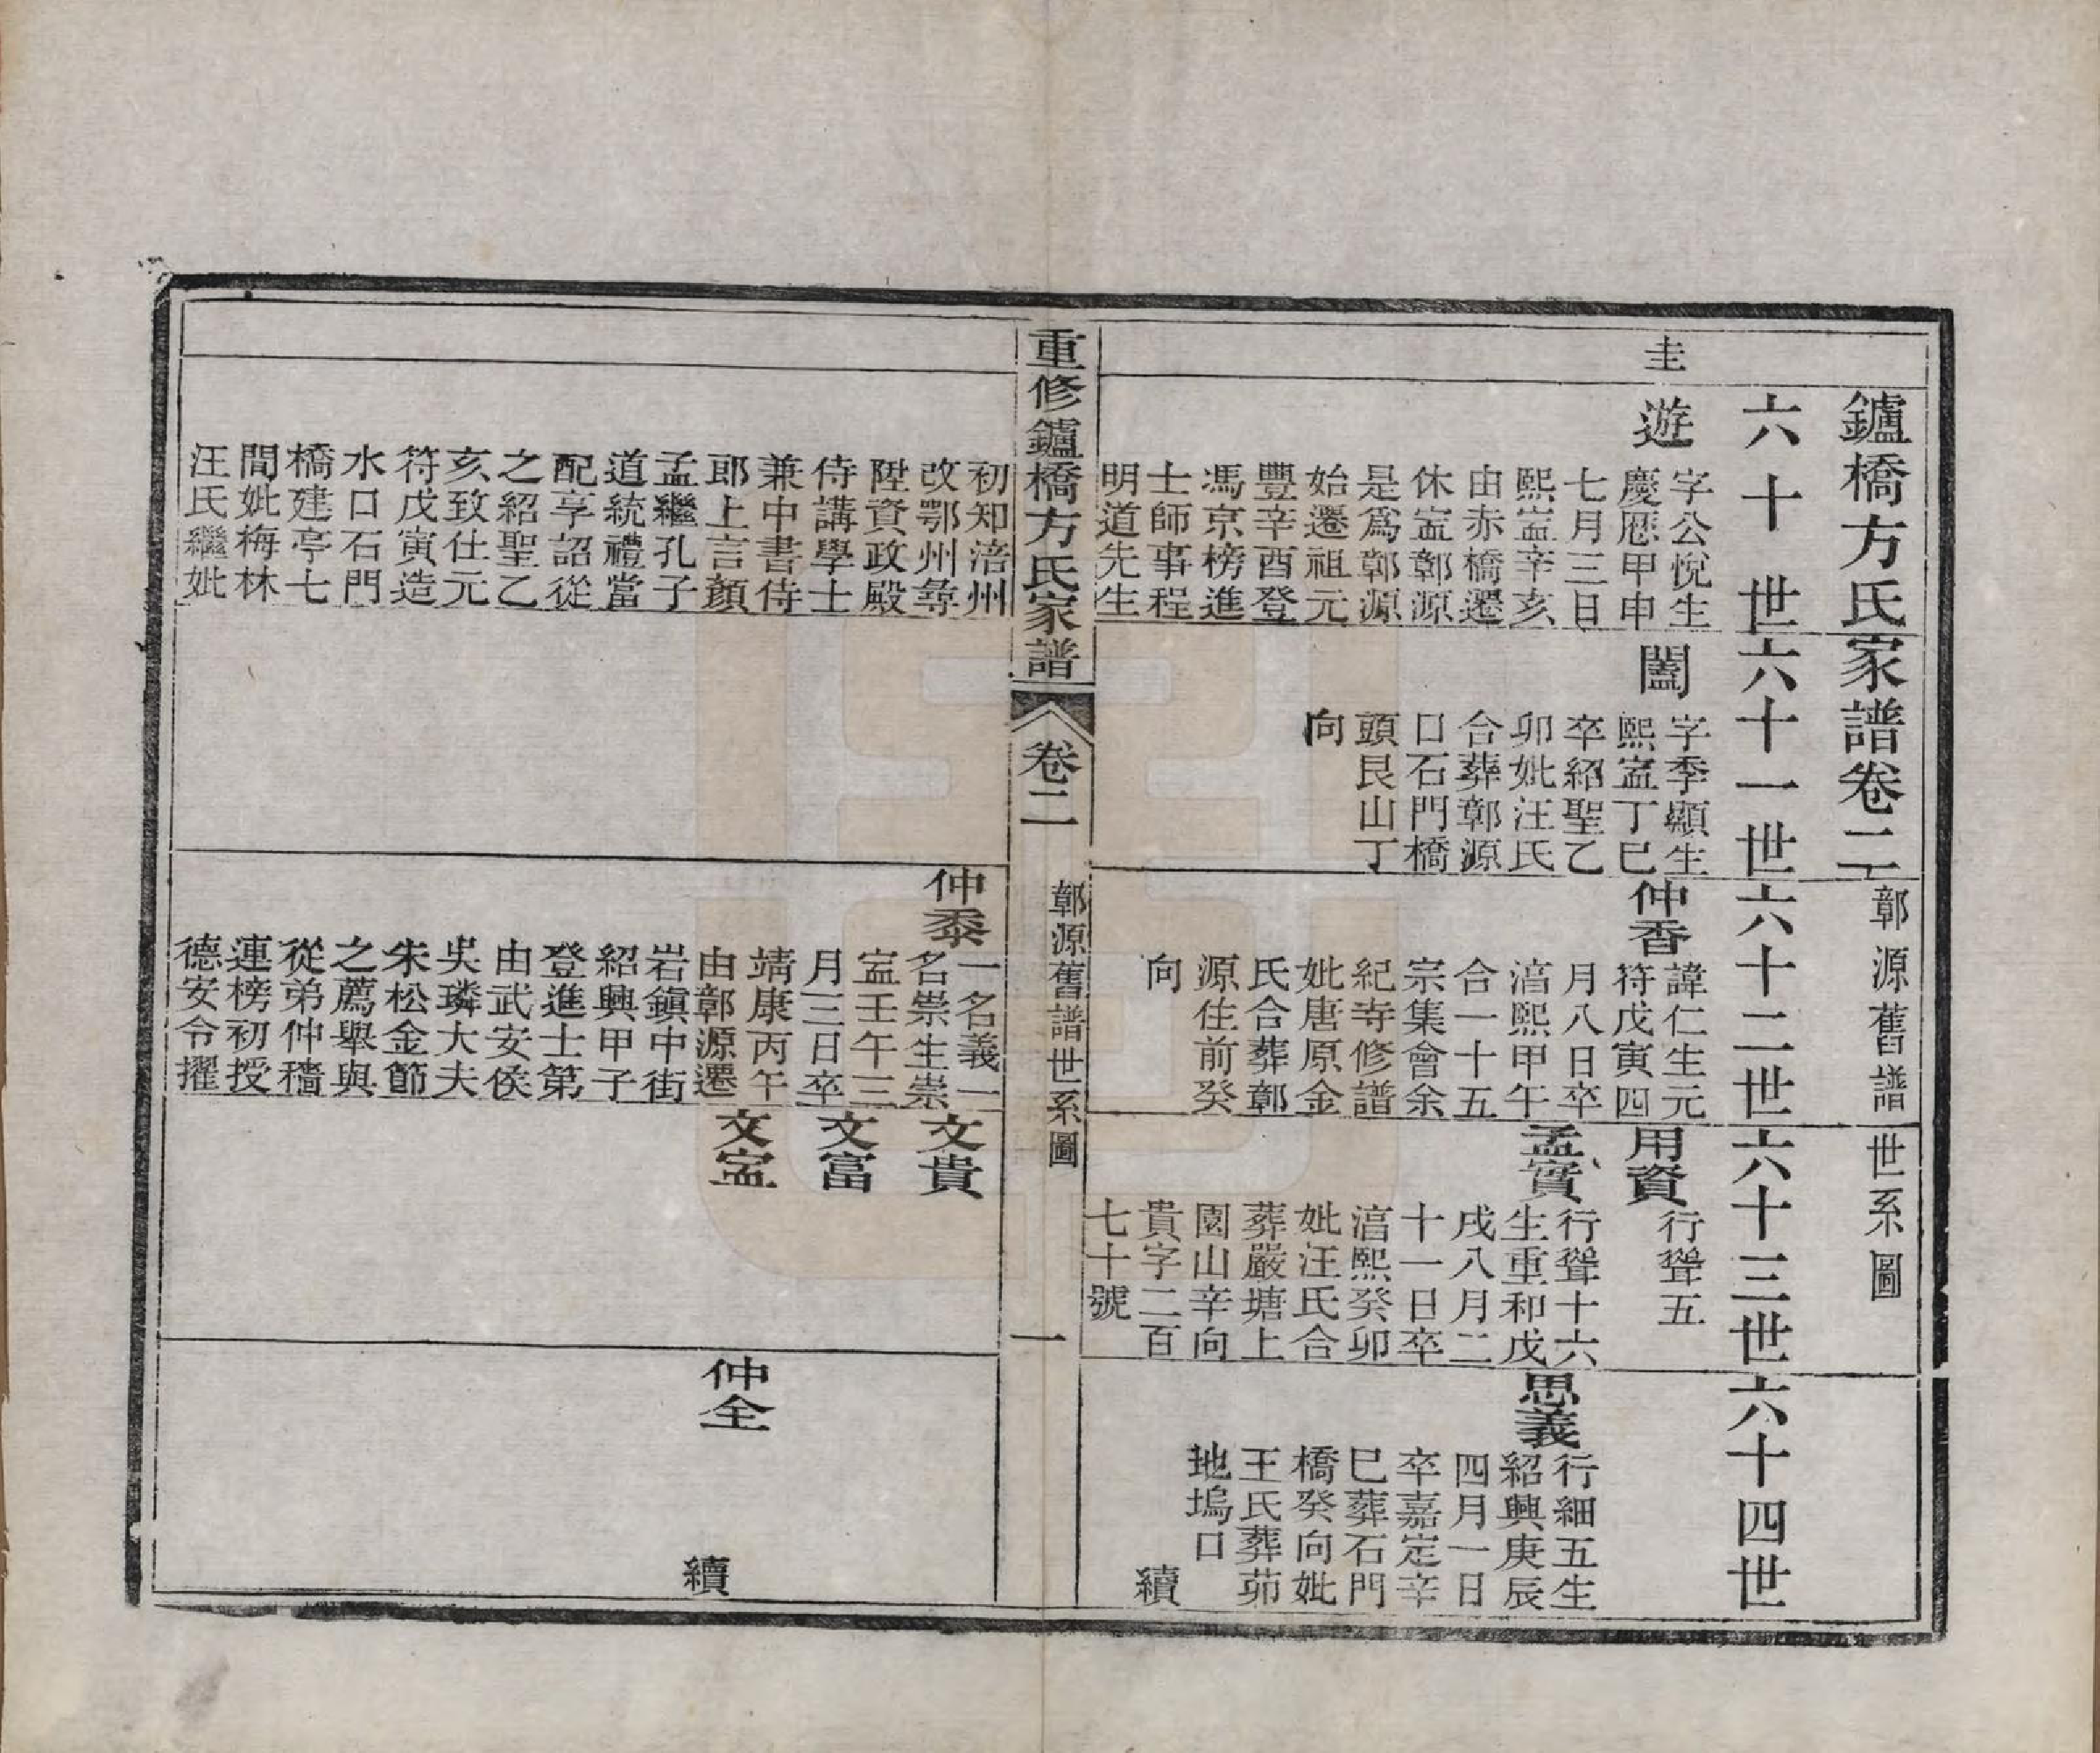 鑪橋方氏家譜卷二 鄣源舊譜 世系圖
六十世
六十一世
六十二世
六十三世
六十四世
圭
遊
字公悅生
慶厯甲申
七月三日
熙寍辛亥
由赤橋遷
休寍鄣源
是爲鄣源
始遷祖元
豐辛酉登
馮京榜進
士師事程
明道先生
闔
字季顯生
熙寍丁巳
卒紹聖乙
卯妣汪氏
合葬鄣源
口石門橋
頭艮山丁
向
仲香
諱仁生元
符戊寅四
月八日卒
湻熙甲午
合一十五
宗集會余
紀寺修譜
妣唐原金
氏合葬鄣
源住前癸
向
用資
行聳五
孟實
行聳十六
生重和戊
戌八月二
十一日卒
湻熙癸卯
妣汪氏合
葬嚴塘上
園山辛向
貴字二百
七十號
思義
行細五生
紹興庚辰
四月一日
卒嘉定辛
巳葬石門
橋癸向妣
王氏葬茆
地塢口
續
重修鑪橋方氏家譜 卷二 鄣源舊譜世系圖 一
初知涪州
改鄂州尋
陞資政殿
侍講學士
兼中書侍
郎上言顏
孟繼孔子
道統禮當
配享詔從
之紹聖乙
亥致仕元
符戊寅造
水口石門
橋建亭七
間妣梅林
汪氏繼妣
仲黍
一名義一
名崇生崇
寍壬午三
月三日卒
靖康丙午
由鄣源遷
岩鎮中街
紹興甲子
登進士第
由武安侯
吳璘大夫
朱松金節
之薦舉與
從弟仲穡
連榜初授
德安令擢
文貴
文富
文寍
仲全
續